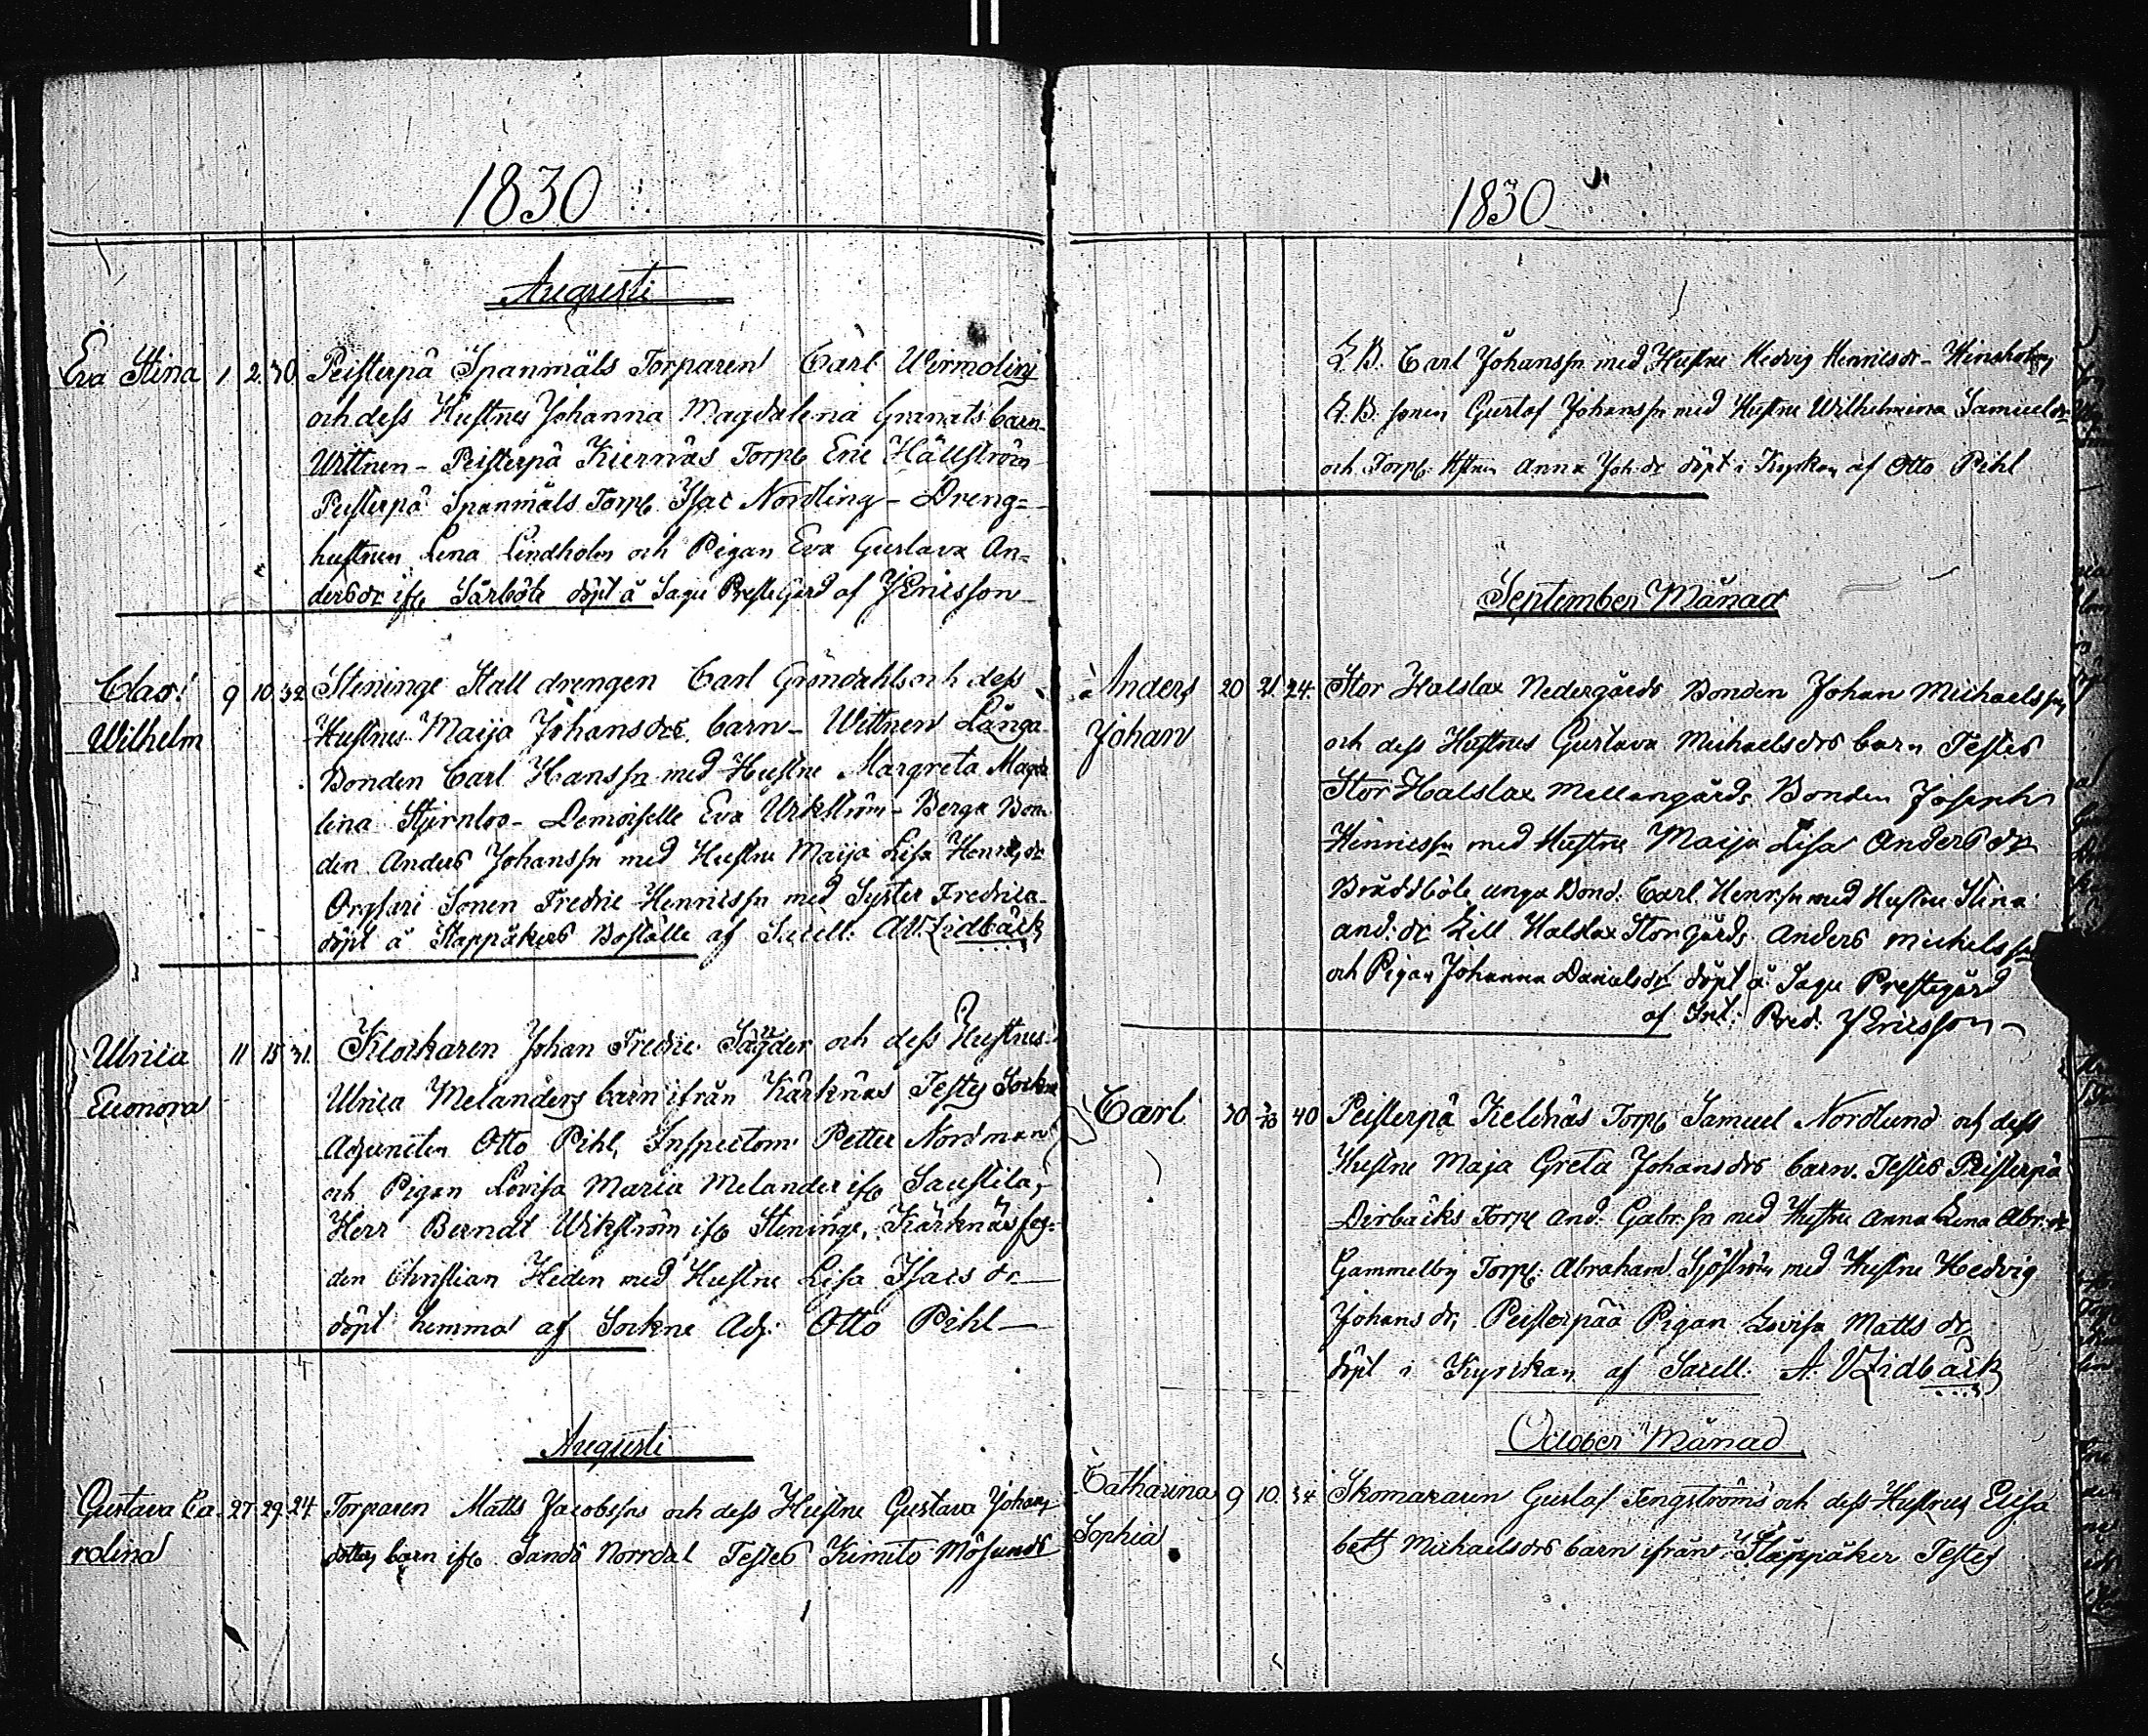 1830
Augusti
Eva Stina 1 2. 30 Peisterpå Spanmäls Torparen Carl Wermoling
och dess Hustrus Johanna Magdalena Granats barn
Wittnen - Peisterpå Kiernäs Torp. Eric Hällström
Peisterpå Spanmäls Torp. Isac Nordling - Dreng=
hustrun Lena Lindholm och Pigan Eva Gustava An=
dersdr ifr. Särböte döpt å Sagu PresteGård af J Ericsson
Clas 9 10. 32 Steninge Stall drengen Carl Gröndahls och dess
Wilhelm Hustrus Maija Johansdrs. barn - Wittnen Långa
Bonden Carl Hanssn med Hustru Margreta Magda
lena Stjernloo - Demoiselle Eva Wikström - Berga Bon
den Anders Johanssn med Hustru Maija Lisa Henr. dr
Sonen Fredric Henricssn med Syster Fredrica
döpt å Slappåkers Boställe af Sacell: A.V. Lidbäck
Ulrica 11 15 31. Klockaren Johan Fredric och dess Hustrus
Eleonora Ulrica Melanders barn ifrån Kärknäs Testes Sockne
Adjuncten Otto Pihl, Inspectorn Petter Nordman
och Pigan Lovisa Maria Melander ifr. Saustila,
Herr Berndt Wikström ifr. Steninge, Kärknäs fog=
den Christian Heden med Hustru Lisa Isacs dr
döpt hemma af Sockne Adj: Otto Pihl
Augusti
Gustava Ca 27. 29. 24 Torparen Matts Jacobssns och dess Hustru Gustava Johans
rolina dotters barn ifr. Sandö Norrdal Testes Kimito Mösunds
1830
L. B. Carl Johanssn med Hustru Hedvig Henricsdr -
L. B. sonen Gustaf Johanssn med Hustru Wilhelmina Samuelsdr
och Torp. Hstrun Anna Joh. dr döpt i Kyrkan af Otto Pihl
September Månad
Anders 20 21. 24. Stor Halslax Nedergårds Bonden Johan Michaelssns
Johan och dess Hustrus Gustava Michaelsdrs barn Testes
Stor Halslax Mellangårds Bonden Joseph
Henricssn med Hustru Maija Lisa Anders dr
Bråddböle unga Bond. Carl Henr.sn med Hustru Stina
And: dr Lill Halslax Storgårds Anders Michelssn
och Pigan Johanna Danielsdr döpt å Sagu Prestegård
af Pred. J Ericsson
Carl 30 40 Peisterpå Keldnäs Torp. Samuel Nordlund och dess
Hustru Maja Greta Johansdrs barn. Testes Peisterpå
Dirbäcks Torp. And: Gabr:sn med Hustru Anna Lena Abr: dr
Gammelby Torp: Abraham Sjöström med Hustru Hedvig
Johans dr, Peisterpåå Pigan Lovisa Matts dr,
döpt i Kyrckan af Sacell: A. V Lidbäck
October Månad
Catharina 9 10. 34 Skomakaren Gustaf Tengströms och dess Hustrus Elisa
Sophia beth Michaelsdrs barn ifrån Släppåker Testes